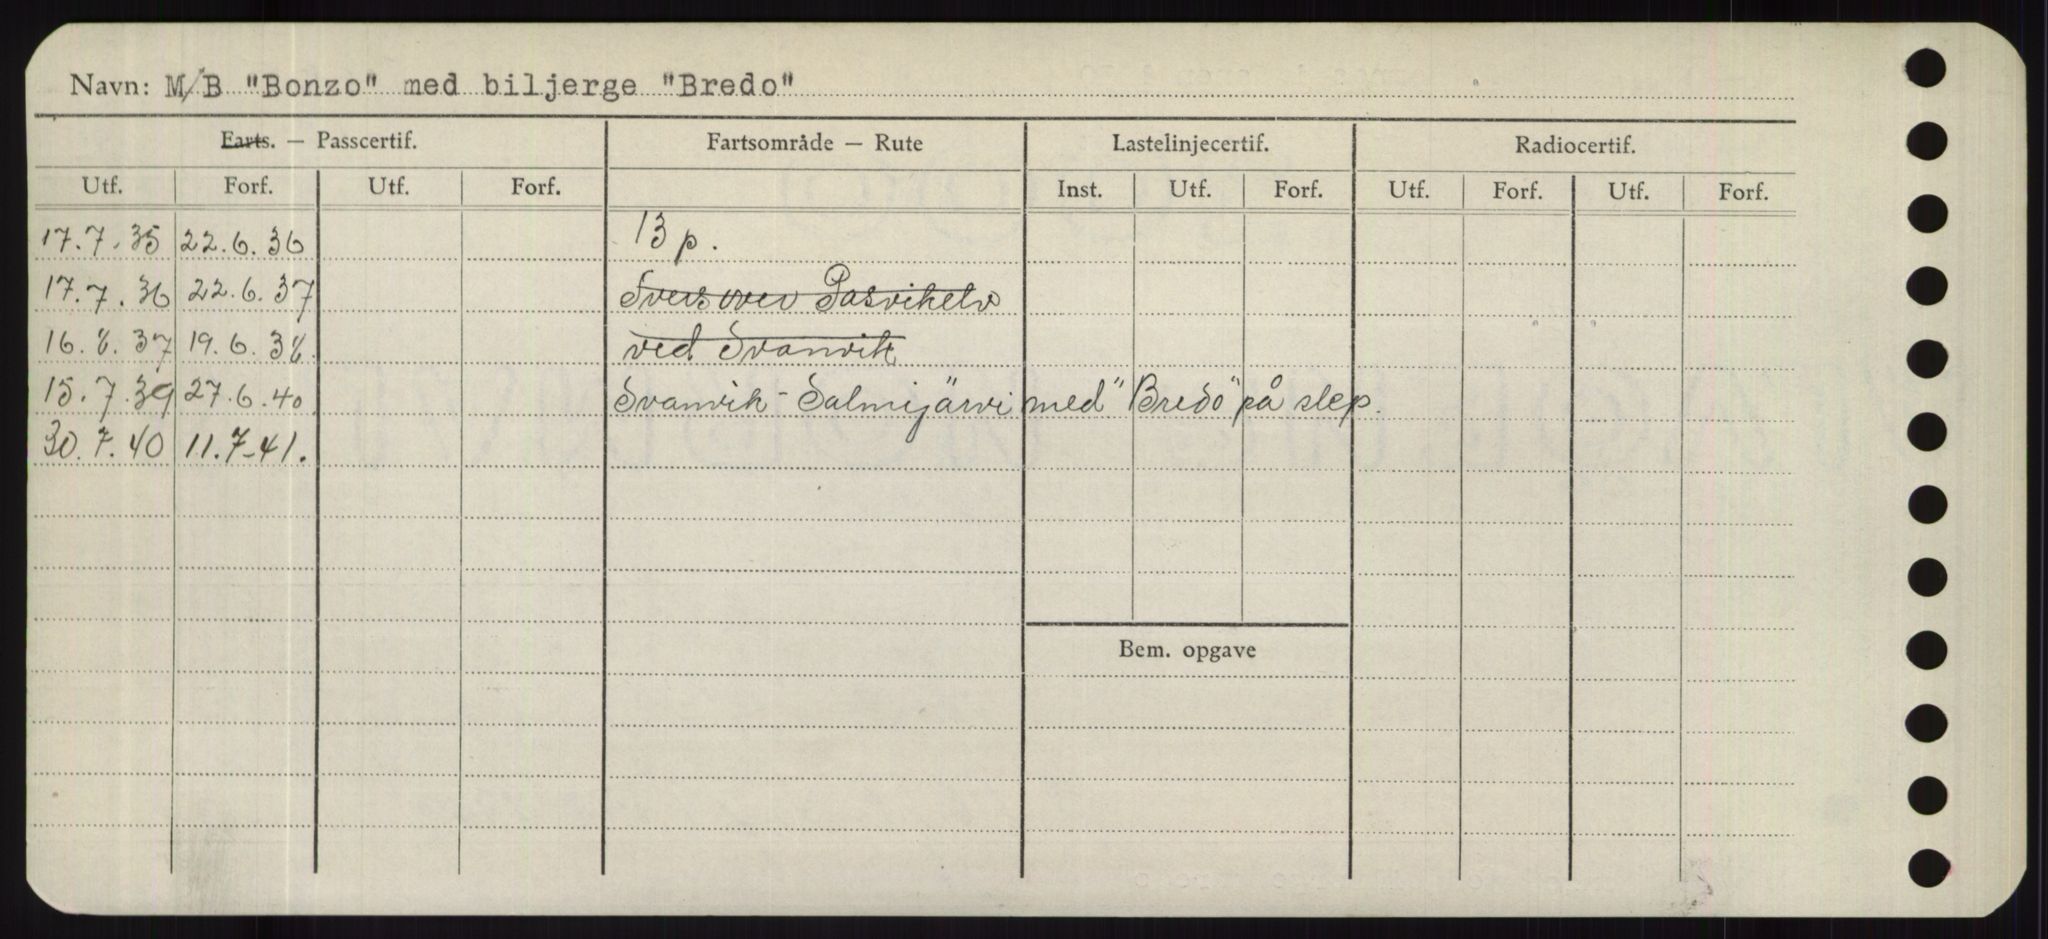 Navn: M/B "Bonzo" med biljerge "Bredo"
Farts. — Passcertif. Fartsområde — Rute Lastelinjecertif. Radiocertif.
Utf. Forf. Utf. Forf. Inst. Utf. Forf. Utf. Forf. Utf. Forf.
17.7.35 22.6.36 13 p.
17.7.36 22.6.37 Tvers over Pasvikelv
16.8.37 19.6.38. ved Svanvik
15.7.39 27.6.40 Svanvik - Salmijärvi med "Bredo" på slep.
30.7.40 11.7.41.
Bem. opgave